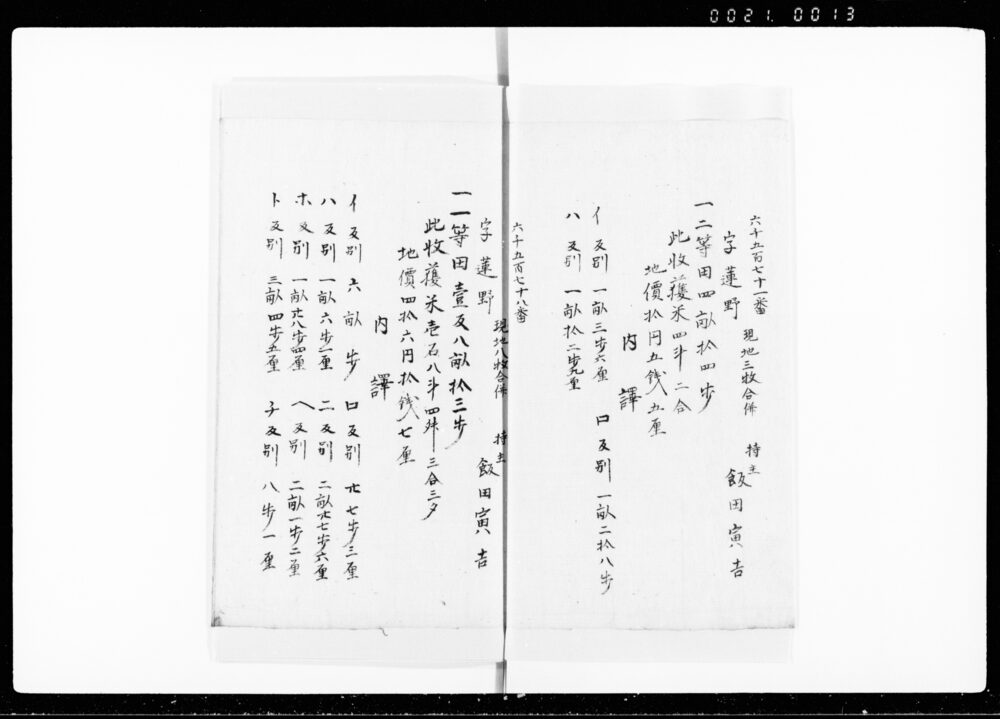 0021. 0013
六千五百七十一番
字蓮野 現地三牧合併 持主 飯田寅吉
一二等田四畝拾四歩
此收獲米四斗二合
地價拾円五銭五厘
内譯
イ反別 一畝三歩六厘 ロ反別 一畝二拾八歩
ハ反別 一畝拾二歩九厘
六千五百七十八番
字蓮野 現地八牧合併 持主 飯田寅吉
一一等田壹反八畝拾三歩
此收獲米壱石八斗四舛三合三夕
地價四拾六円拾銭七厘
内譯
イ反別 六畝歩 ロ反別 廿七歩三厘
ハ反別 一畝六歩一厘 二反別 二畝廿七歩六厘
ホ反別 一畝廿八歩四厘 ヘ反別 二畝一歩二厘
ト反別 三畝四歩五厘 子反別 八歩一厘